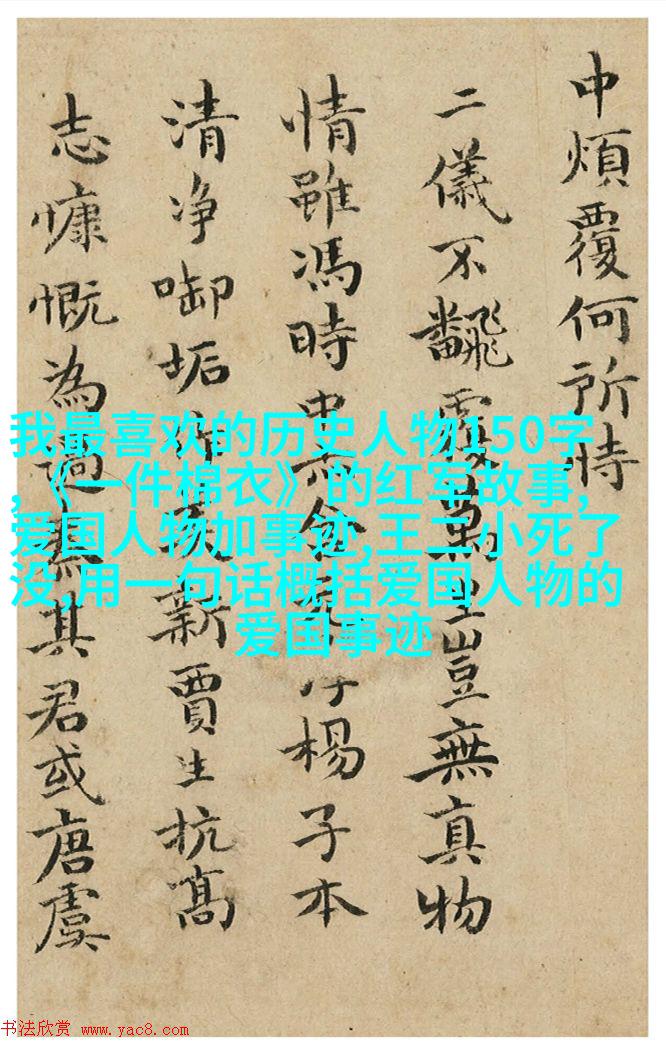 中煩覆何所恃
二儀不飜覆萬里豈無真物
情雖馮時中楊子本
清净啣垢新賈生抗高
志慷慨為其君或唐虞
我最喜欢的历史人物150字
,《一件棉衣》的红军故事,
爱国人物加事迹,王二小死了
没,用一句话概括爱国人物的
爱国事迹
书法欣赏 www.yac8.com